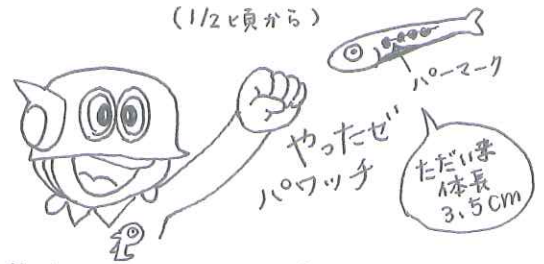 (1/2頃から)
パーマーク
やったゼ
パワッチ
ただい来
体長
3.5cm